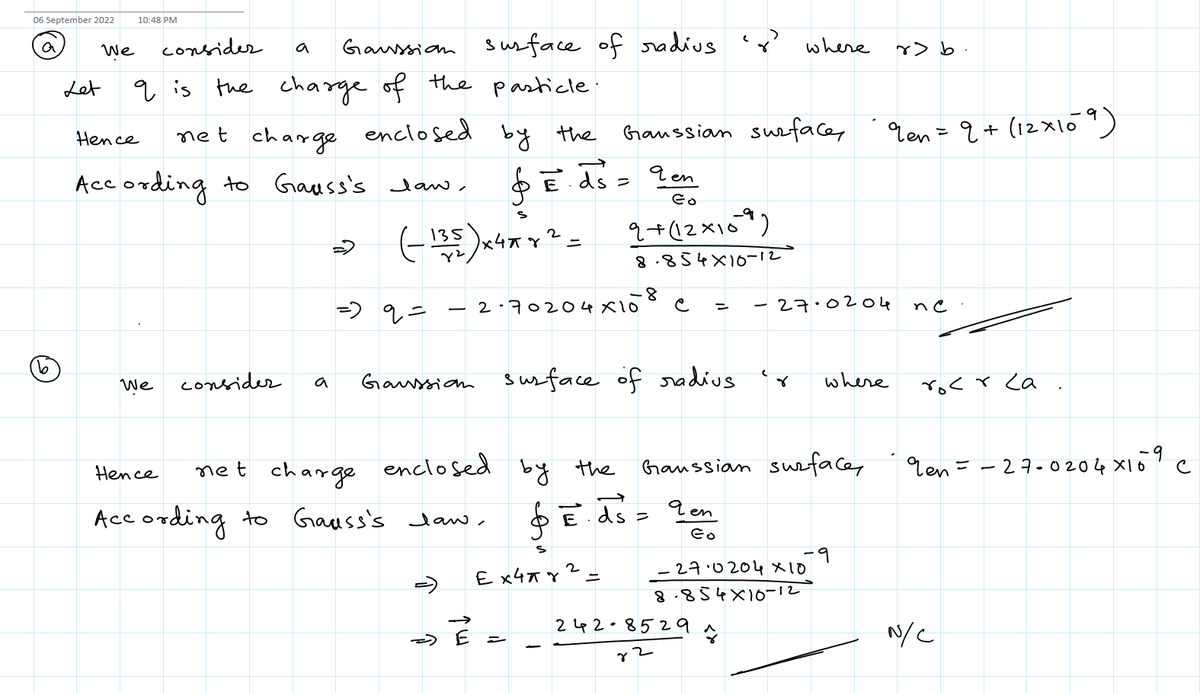 06 September 2022 10:48 PM
(a) We consider a Gaussian surface of radius 'r' where r > b.
Let q is the charge of the particle.
Hence net charge enclosed by the Gaussian surface, qen = q + (12×10⁻⁹)
According to Gauss's law, ∮s E⃗.ds⃗ = qen/ϵ0
⇒ (-135/r²)×4πr² = q+(12×10⁻⁹)/8.854×10⁻¹²
⇒ q = -2.70204×10⁻⁸ C = -27.0204 nC.
(b) We consider a Gaussian surface of radius 'r where r0 < r < a.
Hence net charge enclosed by the Gaussian surface, qen = -27.0204×10⁻⁹ C
According to Gauss's law, ∮s E⃗.ds⃗ = qen/ϵ0
⇒ E×4πr² = -27.0204×10⁻⁹/8.854×10⁻¹²
⇒ E⃗ = -242.8529/r² r̂ N/C